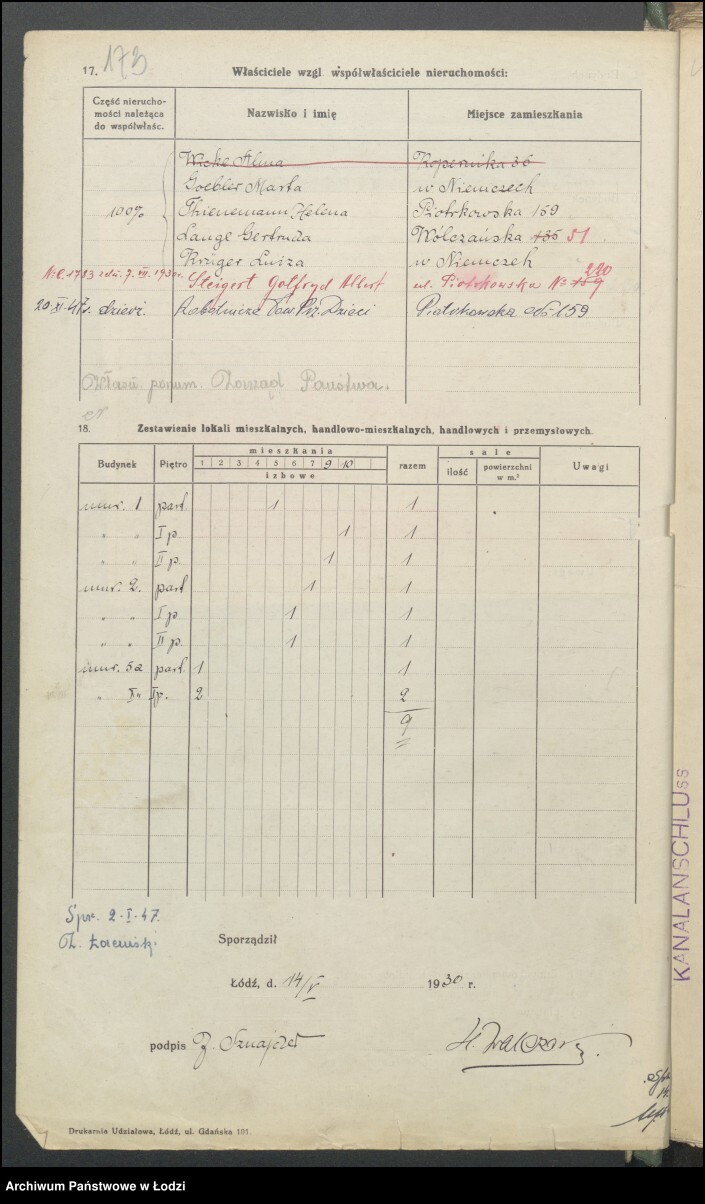 17. 173 Właściciele wzgl. współwłaściciele nieruchomości:
Część nierucho-
mości należąca
do współwłaśc.
Nazwisko i imię
Miejsce zamieszkania
Wicke Alma Kopernika 36
Goebler Marta w Niemczech
100% Thienemann Helena Piotrkowska 159
Lange Gertruda Wólczańska 135 51
Krüger Luiza w Niemczech
220
Steigert Gotfryd Albert ul. Piotrkowska № 159
20.XI.47 r. dzierż. Robotnicze Tow. Prz. Dzieci Piotrkowska 159
Zarząd Państwa.
18. Zestawienie lokali mieszkalnych, handlowo-mieszkalnych, handlowych i przemysłowych.
Budynek Piętro mieszkania razem sale Uwagi
1 2 3 4 5 6 7 9 10
izbowe
ilość powierzchni
w m.²
mur. 1 part 1 1
" " I p. 1 1
" " II p. 1 1
mur. 2. part 1 1
" " I p 1 1
" " II p. 1 1
mur. 5a part. 1 1
" " I p. 2 2
9
Spr. 2.I.47.
Sporządził
Łódź, d. 14/V 1930 r.
podpis
Drukarnia Udziałowa, Łódź, ul. Gdańska 101
KANALANSCHLUSS
Archiwum Państwowe w Łodzi